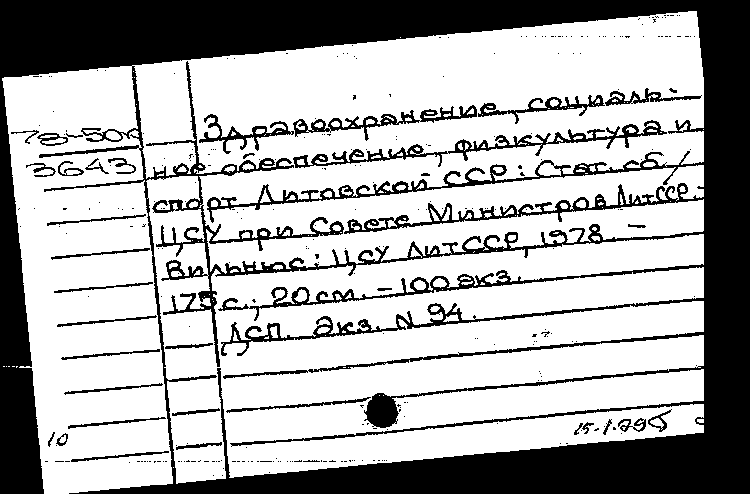 78-50с
3643
Здравоохранение, социаль-
ное обеспечение, физкультура и
спорт Литовской ССР: Стат. сб /
ЦСУ при Совете Министров ЛитССР. -
Вильнюс: ЦСУ ЛитССР, 1978. -
175 с.; 20 см. - 100 экз.
ДСП. Экз. N 94.
10
15.1.79